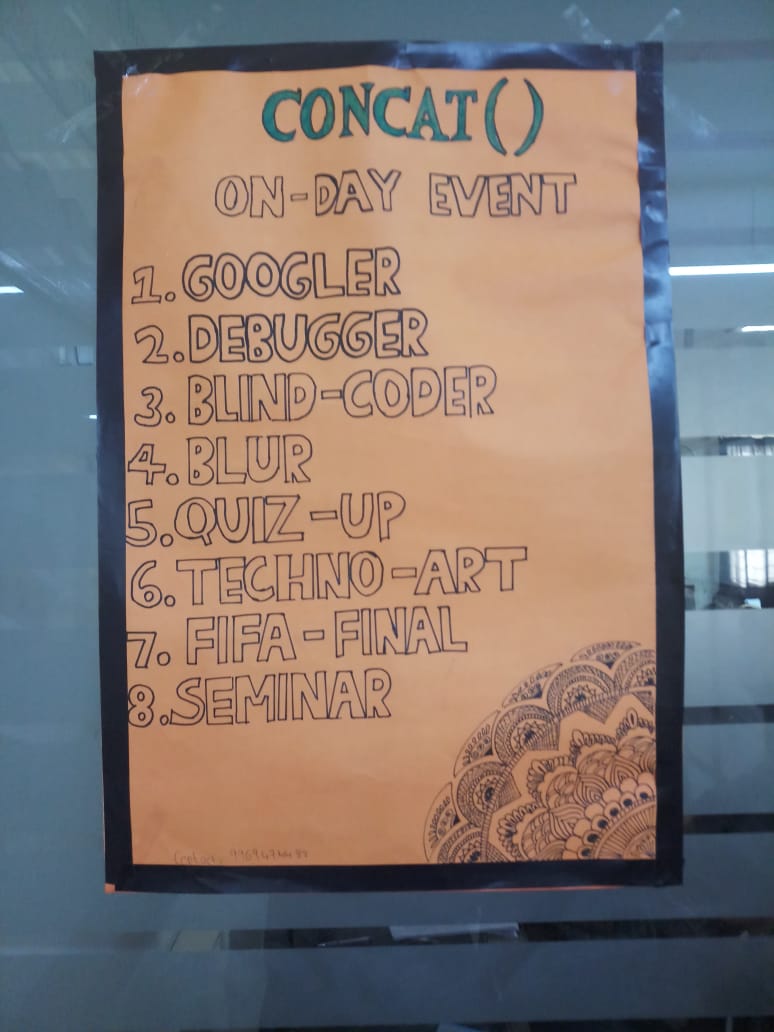 CONCAT()
ON-DAY EVENT
1. GOOGLER
2. DEBUGGER
3. BLIND-CODER
4. BLUR
5. QUIZ-UP
6. TECHNO-ART
7. FIFA-FINAL
8. SEMINAR